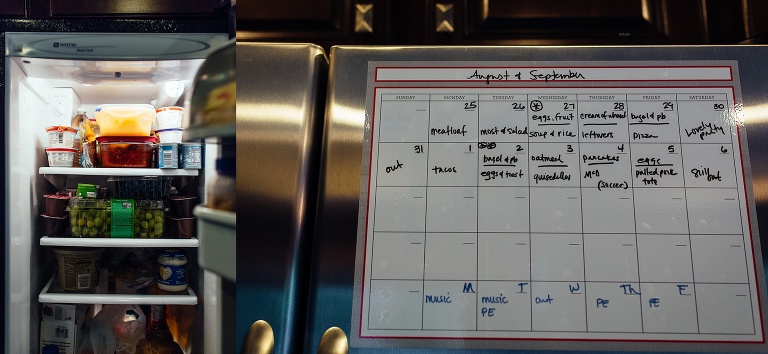 August & September
SUNDAY MONDAY TUESDAY WEDNESDAY THURSDAY FRIDAY SATURDAY
25 26 27 28 29 30
meatloaf
meat & salad
eggs, fruit
soup & rice
cream of wheat
leftovers
bagel & pb
pizza
Lovely party
31 1 2 3 4 5 6
out
tacos
bagel & pb
eggs & toast
oatmeal
quesadillas
pancakes
McD
(soccer)
eggs
pulled pork
tots
M T W Th F
music
music
PE
art
PE
PE